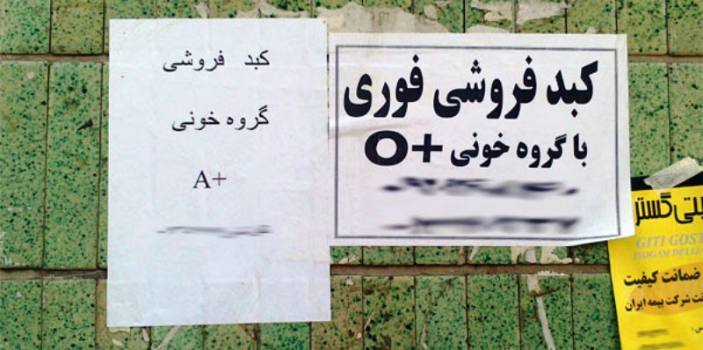 کبد فروشی
گروه خونی
A+
کبد فروشی فوری
با گروه خونی O+
گستر
GITI GOST
ضمانت کیفیت
شرکت بیمه ایران